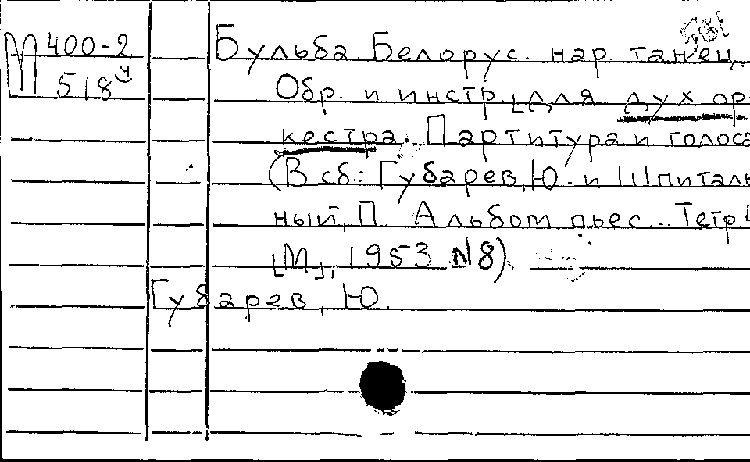 М 400-2
518
Бульба Белорус. нар танец.
Обр. и инстр. [для дух ор
кестра. Партитура и голоса
(В сб: Губарев, Ю. и Шпиталь
ный, П. Альбом пьес.. Тетр I
[М], 1953 №8)
Губарев, Ю.